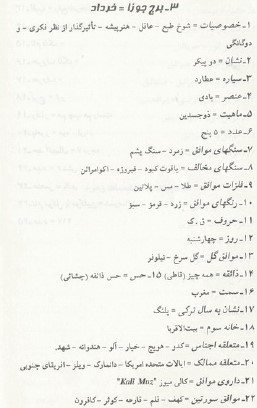 ۳ـ برج جوزا = خرداد
۱ـ خصوصیات = شوخ طبع - عاقل - هنرپیشه - تأثیرگذار از نظر فکری - و
دوگانگی
۲ـ نشان = دو پیکر
۳ـ سیاره = عطارد
۴ـ عنصر = بادی
۵ـ ماهیت = ذوجسدین
۶ـ عدد = ۵ پنج
۷ـ سنگهای موافق = زمرد - سنگ یشم
۸ـ سنگهای مخالف = یاقوت کبود - فیروزه - اکوامرائن
۹ـ فلزات موافق = طلا - مس - پلاتین
۱۰ـ رنگهای موافق = زرد - قرمز - سبز
۱۱ـ حروف = ق.ک
۱۲ـ روز = چهارشنبه
۱۳ـ موافق گل = گل سرخ - نیلوفر
۱۴ـ ذائقه = همه چیز (قاطی) ۱۵ـ حس = حس ذائقه (چشائی)
۱۶ـ سمت = مغرب
۱۷ـ نشان به سال ترکی = پلنگ
۱۸ـ خانه سوم = بیت‌الاقربا
۱۹ـ متعلقه اجناس = گندر - هویج - خیار - آلو - هندوانه - شهد.
۲۰ـ متعلقه ممالک = ایالات متحده امریکا - دانمارک - ویلز - افریقای جنوبی
۲۱ـ داروی موافق = کالی میور "Kali Muz"
۲۲ـ موافق سورتین = کهف - قلم - قارعه - کوثر - کافرون